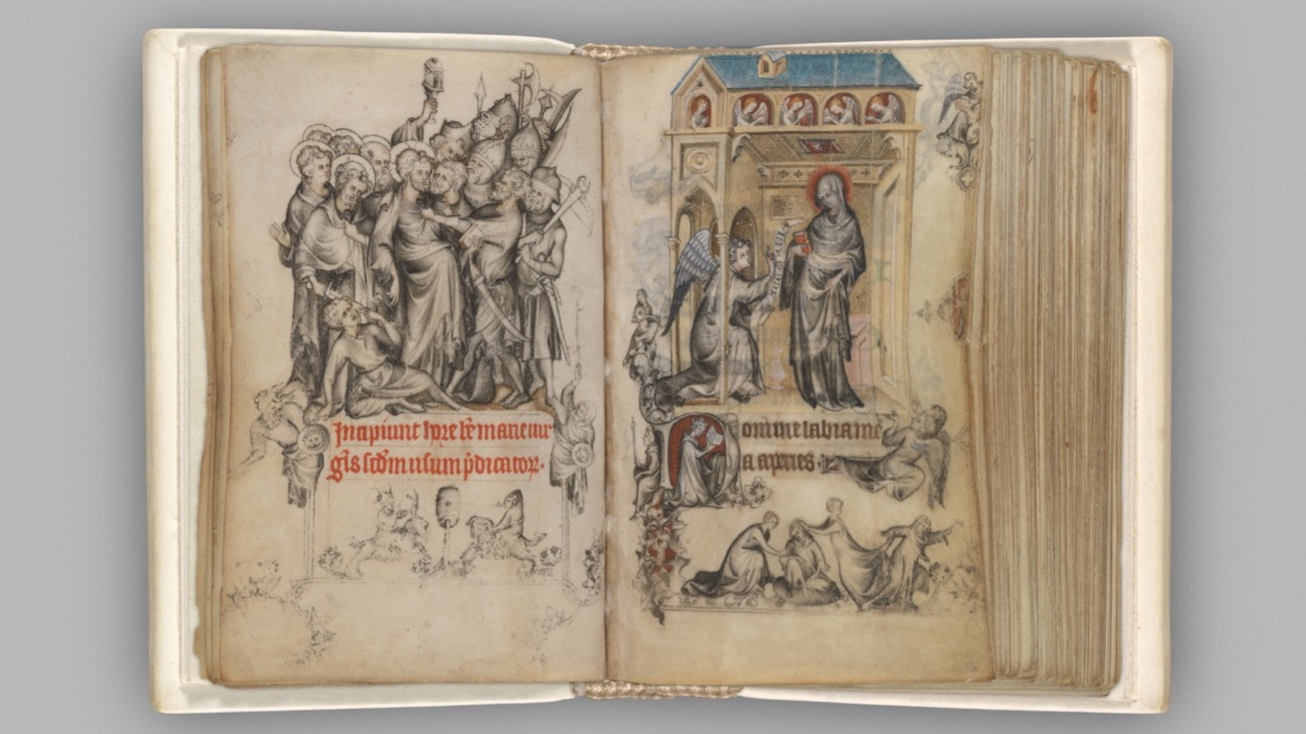 Incipiunt hore bẽ marie uir
gĩs scďm usum p̃dicatoꝝ·
Domine labia me
a aperies·